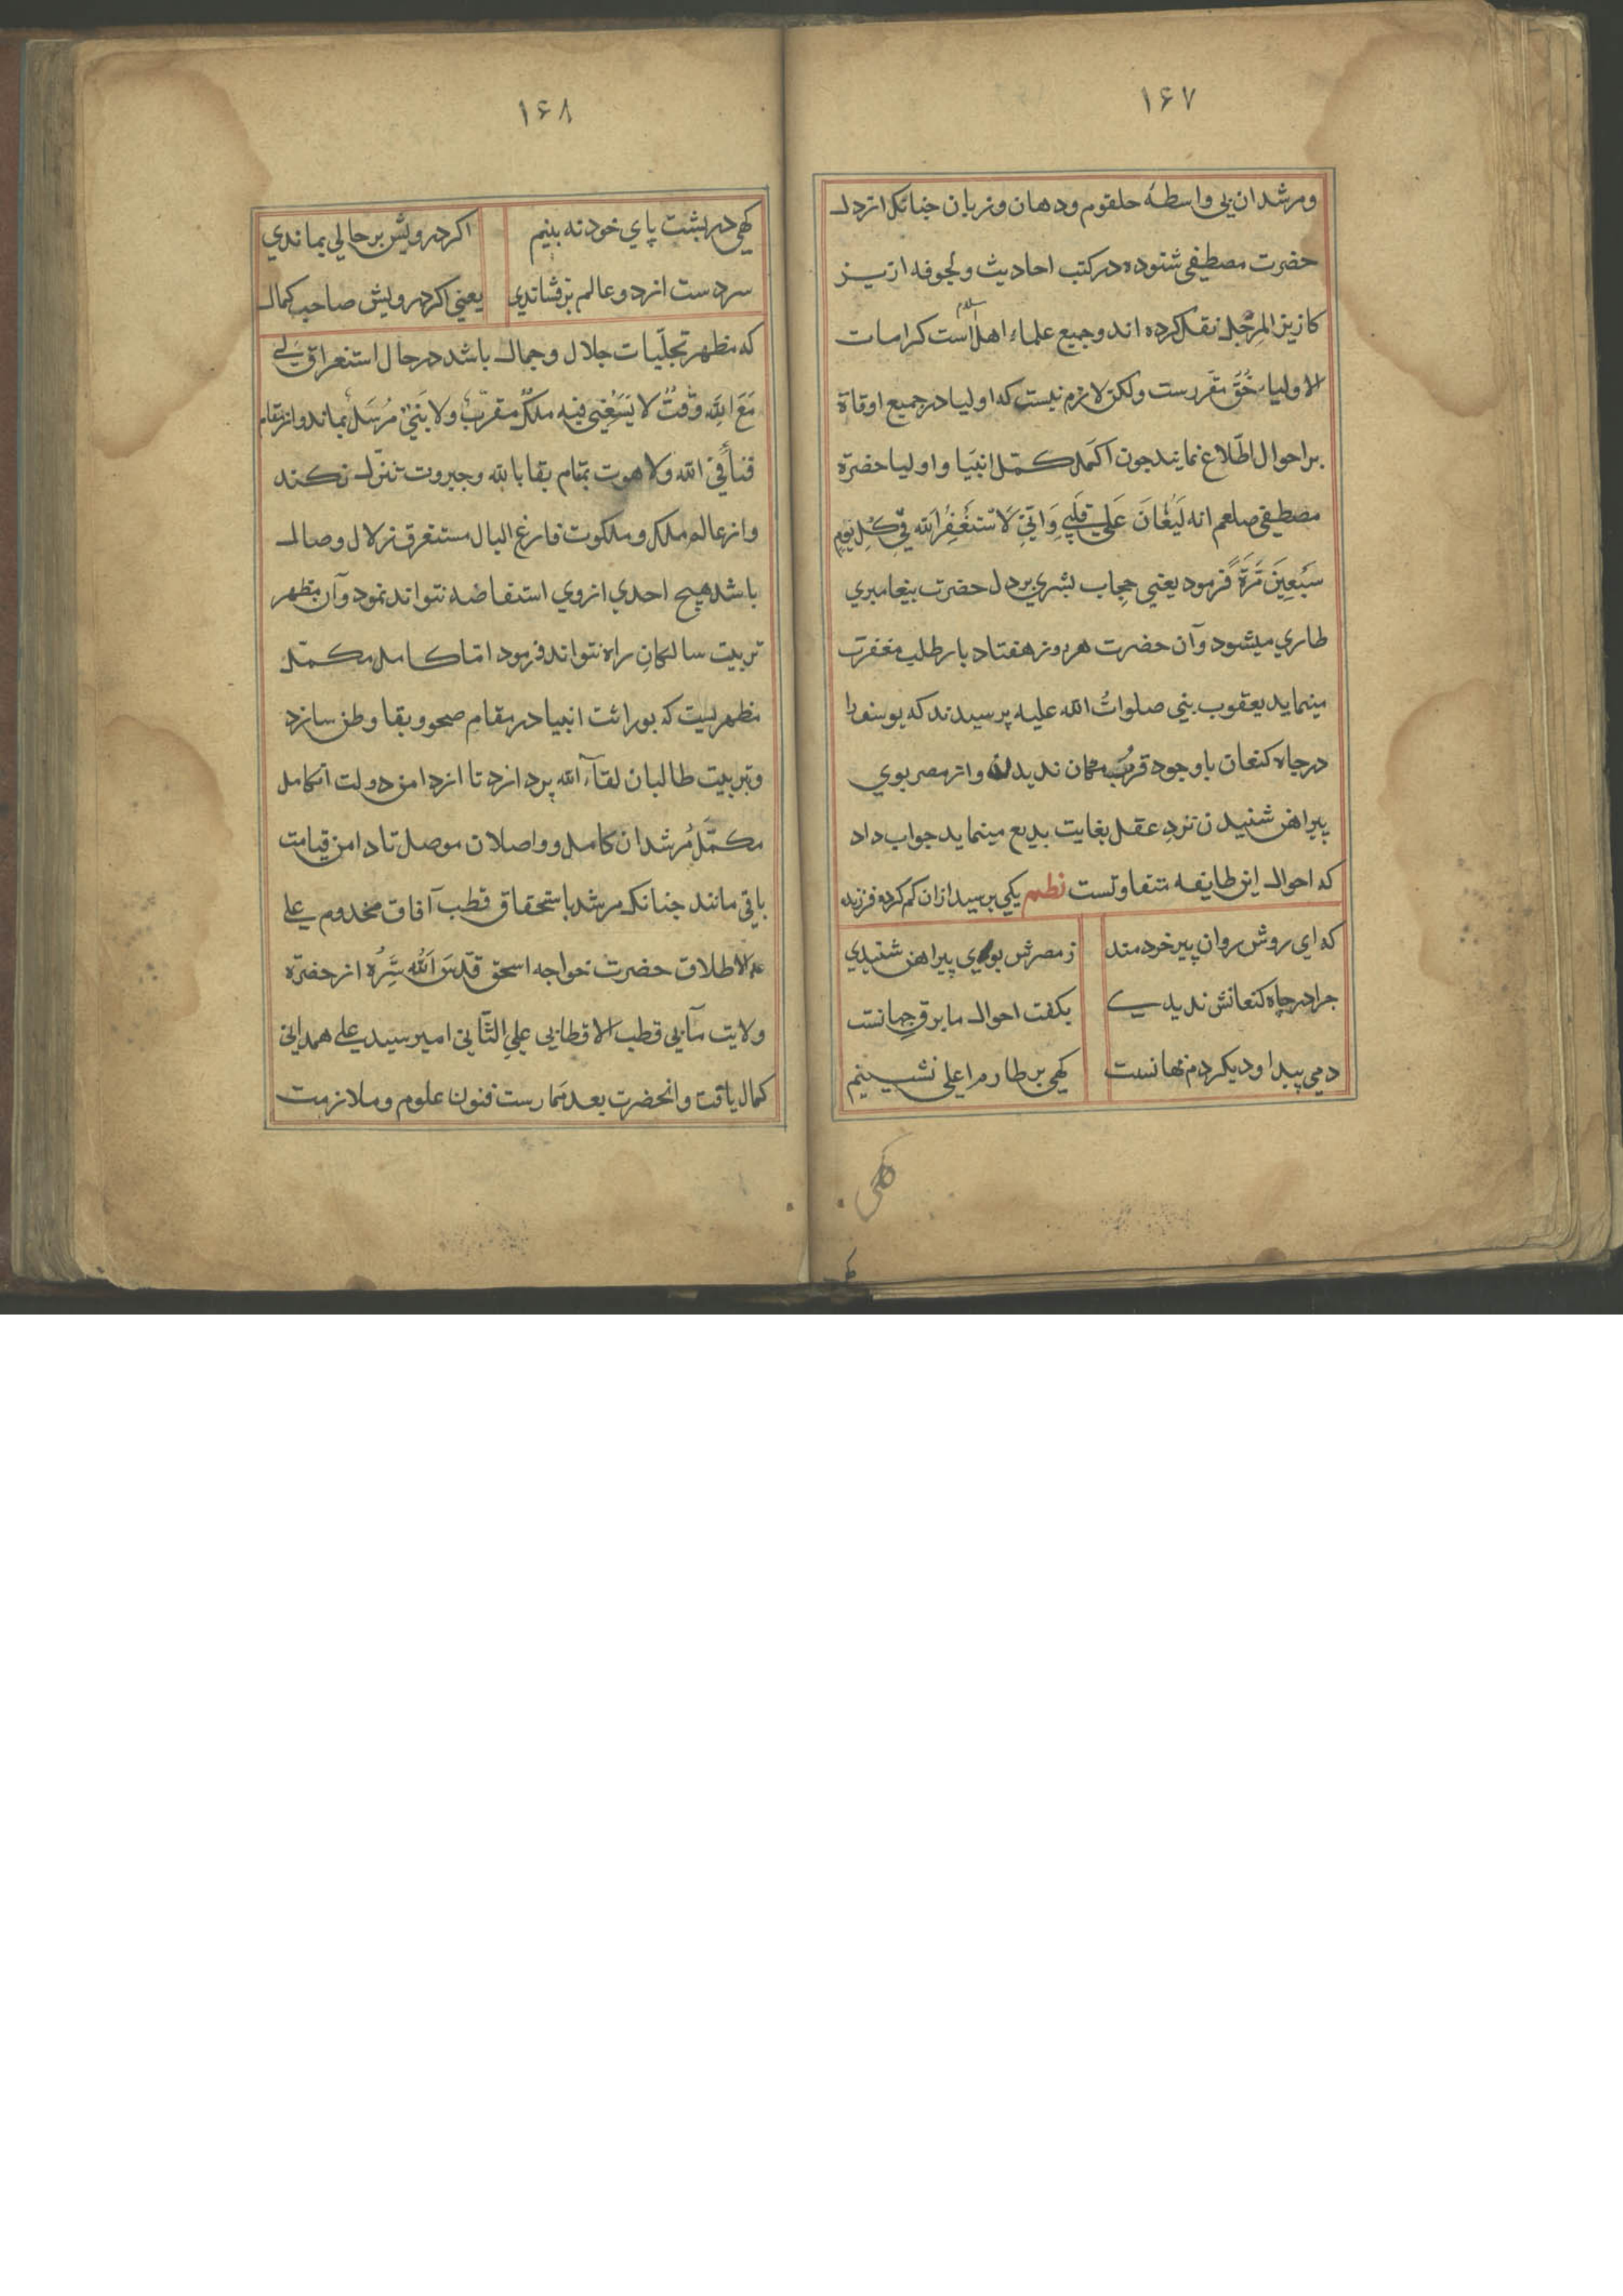 ۱۶۷
ومرشدان بی واسطهٔ حلقوم ودهان وزبان جنانکه از دل
حضرت مصطفی شنوده در کتب احادیث ولجوفه ازیز
کازیز المرجل نقل کرده اند وجمیع علماء اهل اسلام است کرامات
الاولیا حُقّ مقررست ولکن لازم نیست که اولیا در جمیع اوقاة
بر احوال اطّلاع نمایند جون اکمل کمّل انبیا واولیا حضرة
مصطفی صلعم انه لَیُغَانَ عَلَی قَلبِی وَاِنِّی لَاَستَغفِرُ اَلله فِی کُلِ یَومٍ
سَبعِینَ مَرَةً فرمود یعنی حجاب بشری بر دل حضرت بیغامبری
طاری میشود وآن حضرت هر روز هفتاد بار طلب مغفرت
مینماید یعقوب بنی صلواتُ الله علیه پرسیدند که یوسف را
در جاه کنعان باوجود قرب مکان ندیدن واز مصر بوی
پیراهن شنیدن نزدِ عقل بغایت بدیع مینماید جواب داد
که احوال این طایفه متفاوتست نظم یکی برسید ازان کم کرده فرزند
که ای روشن روان پیر خردمند
ز مصرش بوی پیراهن شنیدی
جرا در چاه کنعانش ندیدی
بکفت احوال ما برق جهانست
دمی پیدا ودیکر دم نهانست
کهی بر طارم اعلی نشینم
کهی
۱۶۸
کهی در بشت پای خود نه بینم
اکر درویش بر حالی بماندی
سر دست از دو عالم برفشاندی
یعنی اکر درویش صاحب کمال
که مظهر تجلّیات جلال وجمال باشد در حال استغراق لی
مَعَ اَلله وَقتٌ لا یَسَعُنِی فیه ملکٌ مقرّبٌ ولا نبیٌ مُرسَلٌ بماند واز مقام
فناً فی الله ولاهوت بمقام بقا بالله وجبروت تنزّل نکند
واز عالم ملک وملکوت فارغ البال مستغرق زلال وصال
باشد هیچ احدی از وی استفاضه نتواند نمود وآن مظهر
تربیت سالکانِ راه نتواند فرمود امّا کامل مکمّل
مظهریست که بوراثت انبیا در مقامِ صحو وبقا وطن سازد
وتربیت طالبان لقآء الله پردازد تا از دامن دولت آن کامل
مکمّل مُرشدان کامل وواصلان موصل تا دامن قیامت
باقی مانند جنانکه مرشد باستحقاق قطب آفاق مخدوم علی
الاطلاق حضرت خواجه اسحق قدّسَ اَللهُ سِّرُه از حضرة
ولایت مآبی قطب الاقطابی علیِ الثّانی امیر سید علی همدانی
کمال یافت وانحضرت بعد مَمارست فنون علوم وملازمت